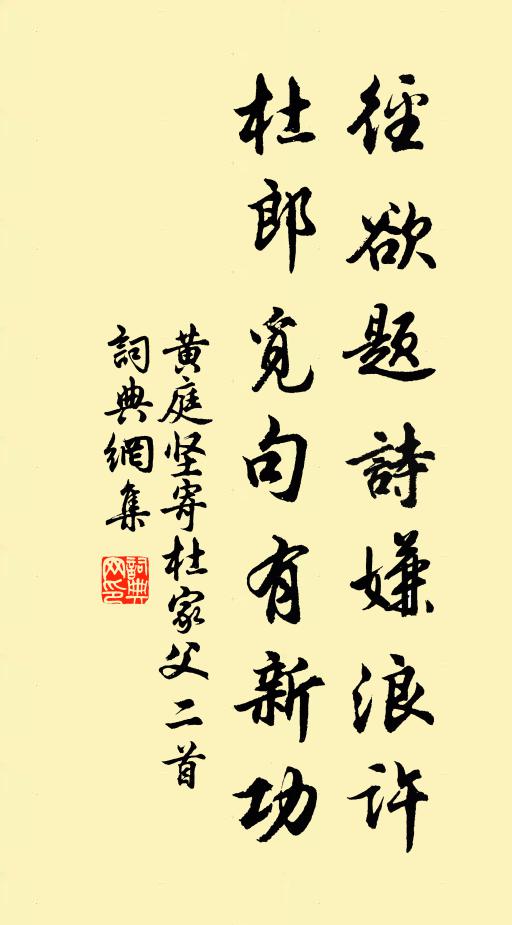 徑欲題詩嫌浪許
杜郎覓句有新功
黄庭坚寄杜家父二首
詞典網集
詞典網印